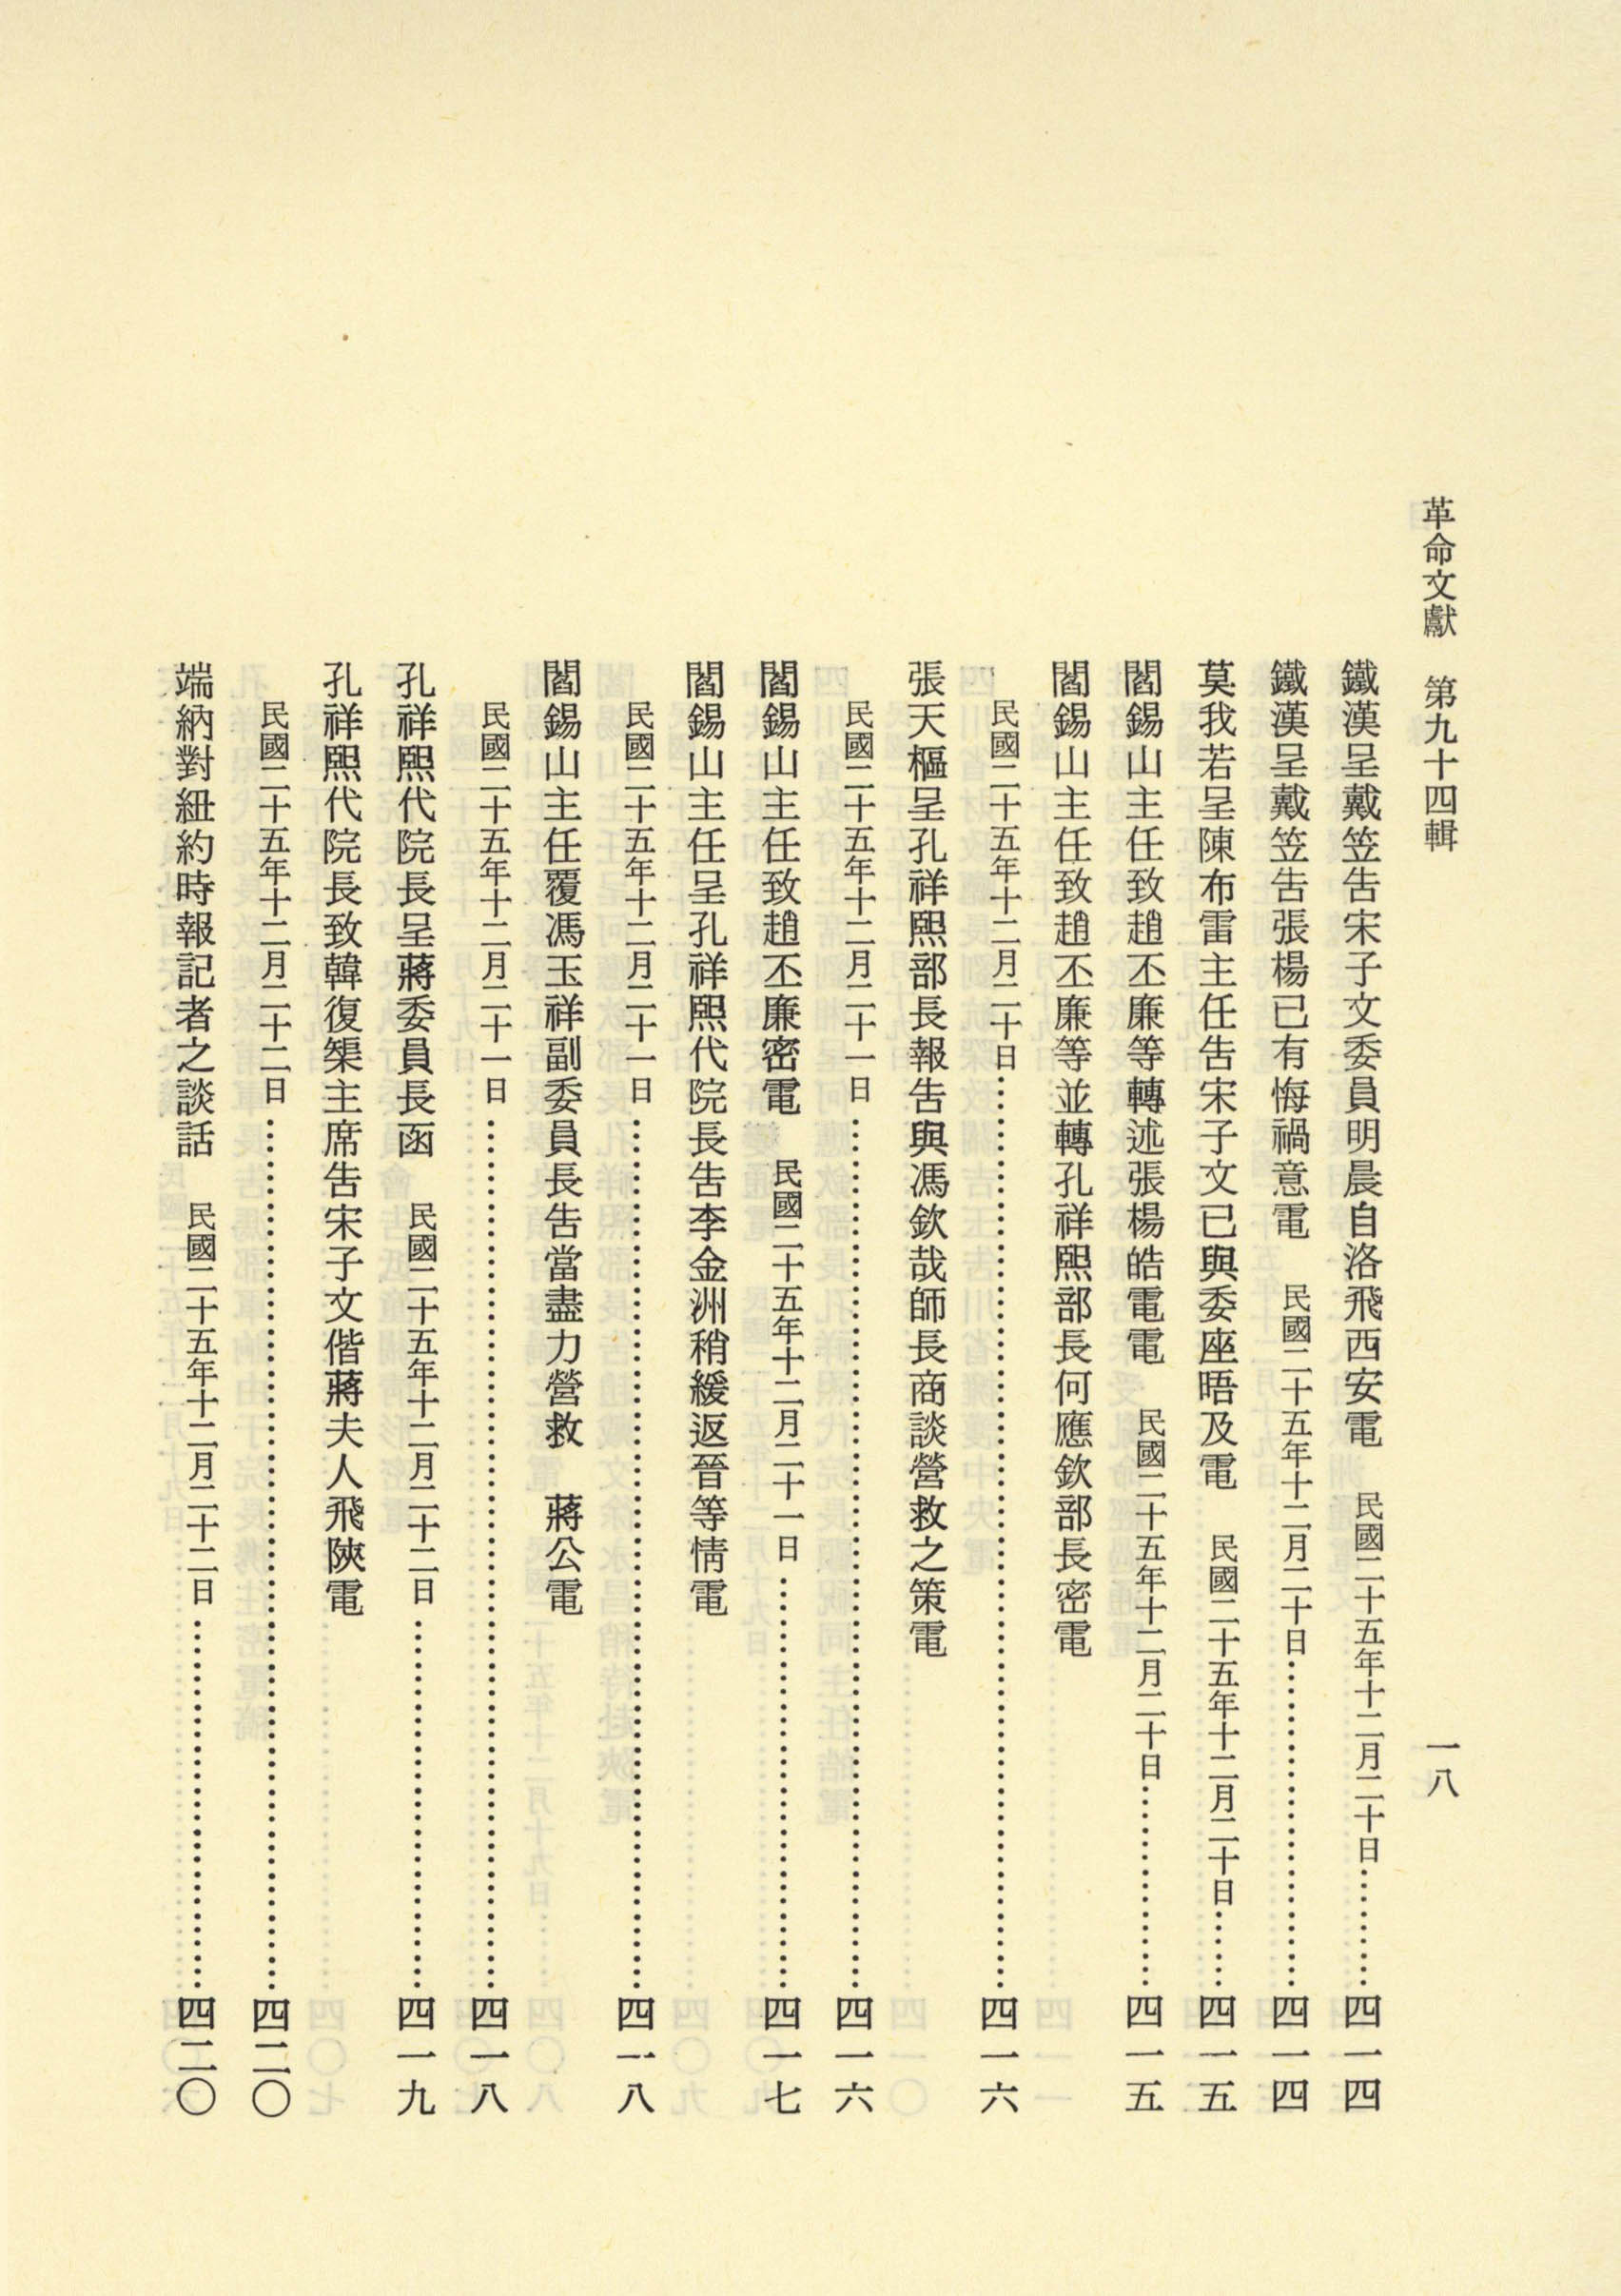 革命文獻　第九十四輯　一八
鐵漢呈戴笠吿宋子文委員明晨自洛飛西安電　民國二十五年十二月二十日……四一四
鐵漢呈戴笠吿張楊已有悔禍意電　民國二十五年十二月二十日……四一四
莫我若呈陳布雷主任吿宋子文已與委座晤及電　民國二十五年十二月二十日……四一五
閻錫山主任致趙丕廉等轉述張楊皓電電　民國二十五年十二月二十日……四一五
閻錫山主任致趙丕廉等並轉孔祥熙部長何應欽部長密電
民國二十五年十二月二十日……四一六
張天樞呈孔祥熙部長報吿與馮欽哉師長商談營救之策電
民國二十五年十二月二十一日……四一六
閻錫山主任致趙丕廉密電　民國二十五年十二月二十一日……四一七
閻錫山主任呈孔祥熙代院長吿李金洲稍緩返晉等情電
民國二十五年十二月二十一日……四一八
閻錫山主任覆馮玉祥副委員長吿當盡力營救　蔣公電
民國二十五年十二月二十一日……四一八
孔祥熙代院長呈蔣委員長函　民國二十五年十二月二十二日……四一九
孔祥熙代院長致韓復榘主席吿宋子文偕蔣夫人飛陝電
民國二十五年十二月二十二日……四二〇
端納對紐約時報記者之談話　民國二十五年十二月二十二日……四二〇